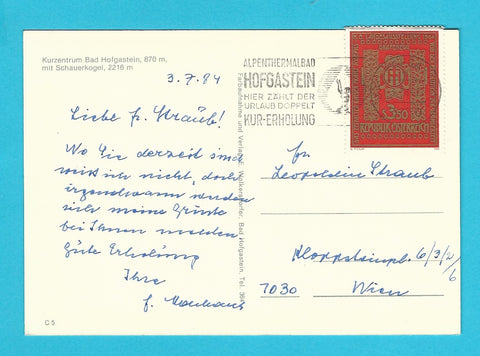 Kurzentrum Bad Hofgastein, 870 m,
mit Schauerkogel, 2216 m
3.7.84
Liebe Fr. Straub!
Wo Sie derzeit sind
weiß ich nicht, doch
irgendwann werden
sich meine Grüße
bei Ihnen melden
Gute Erholung
Ihre
C 5
ALPENTHERMALBAD
HOFGASTEIN
HIER ZÄHLT DER
URLAUB DOPPELT
KUR-ERHOLUNG
S 3.50
REPUBLIK ÖSTERREICH
Bad Hofgastein, Tel.
Fr.
Leopoldine Straub
6/3/2/6
7030 Wien